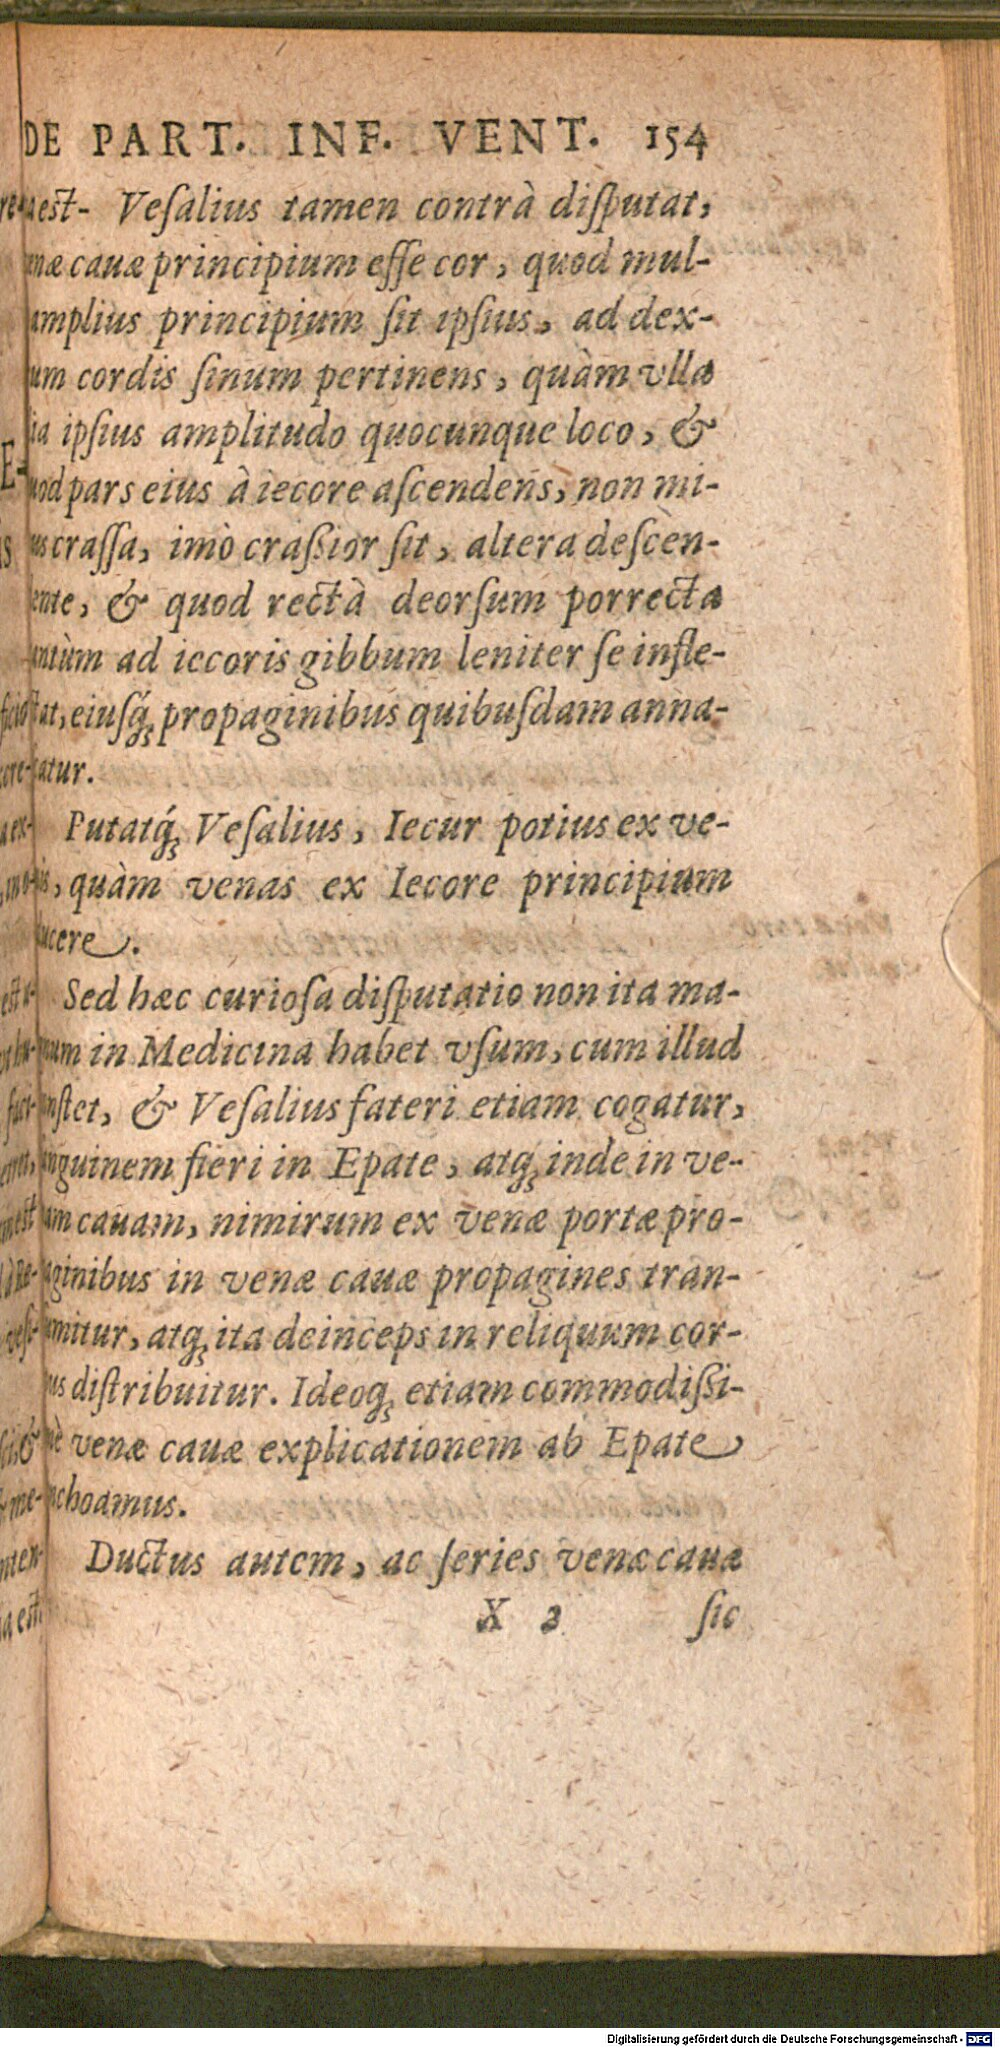 DE PART. INF. VENT. 154
est- Veſalius tamen contrà diſputat,
cauæ principium eſſe cor, quod mul-
amplius principium ſit ipſius, ad dex-
um cordis ſinum pertinens, quàm vlla
ia ipſius amplitudo quocunque loco, &
uod pars eius à iecore aſcendens, non mi-
us craſſa, imò craßior ſit, altera deſcen-
ente, & quod rectà deorſum porrecta
antùm ad iecoris gibbum leniter ſe infle-
tat, eiusq́ꝫ propaginibus quibuſdam anna-
atur.
Putatq́ꝫ Veſalius, Iecur potius ex ve-
is, quàm venas ex Iecore principium
ucere.
Sed hæc curioſa diſputatio non ita ma-
num in Medicina habet vſum, cum illud
onſtet, & Veſalius fateri etiam cogatur,
anguinem fieri in Epate, atqꝫ inde in ve-
am cauam, nimirum ex venæ portæ pro-
aginibus in venæ cauæ propagines tran-
ſmitur, atqꝫ ita deinceps in reliquum cor-
us diſtribuitur. Ideoqꝫ etiam commodißi-
mè venæ cauæ explicationem ab Epate
nchoamus.
Ductus autem, ac ſeries venæ cauæ
X 2 ſic
Digitalisierung gefördert durch die Deutsche Forschungsgemeinschaft - DFG